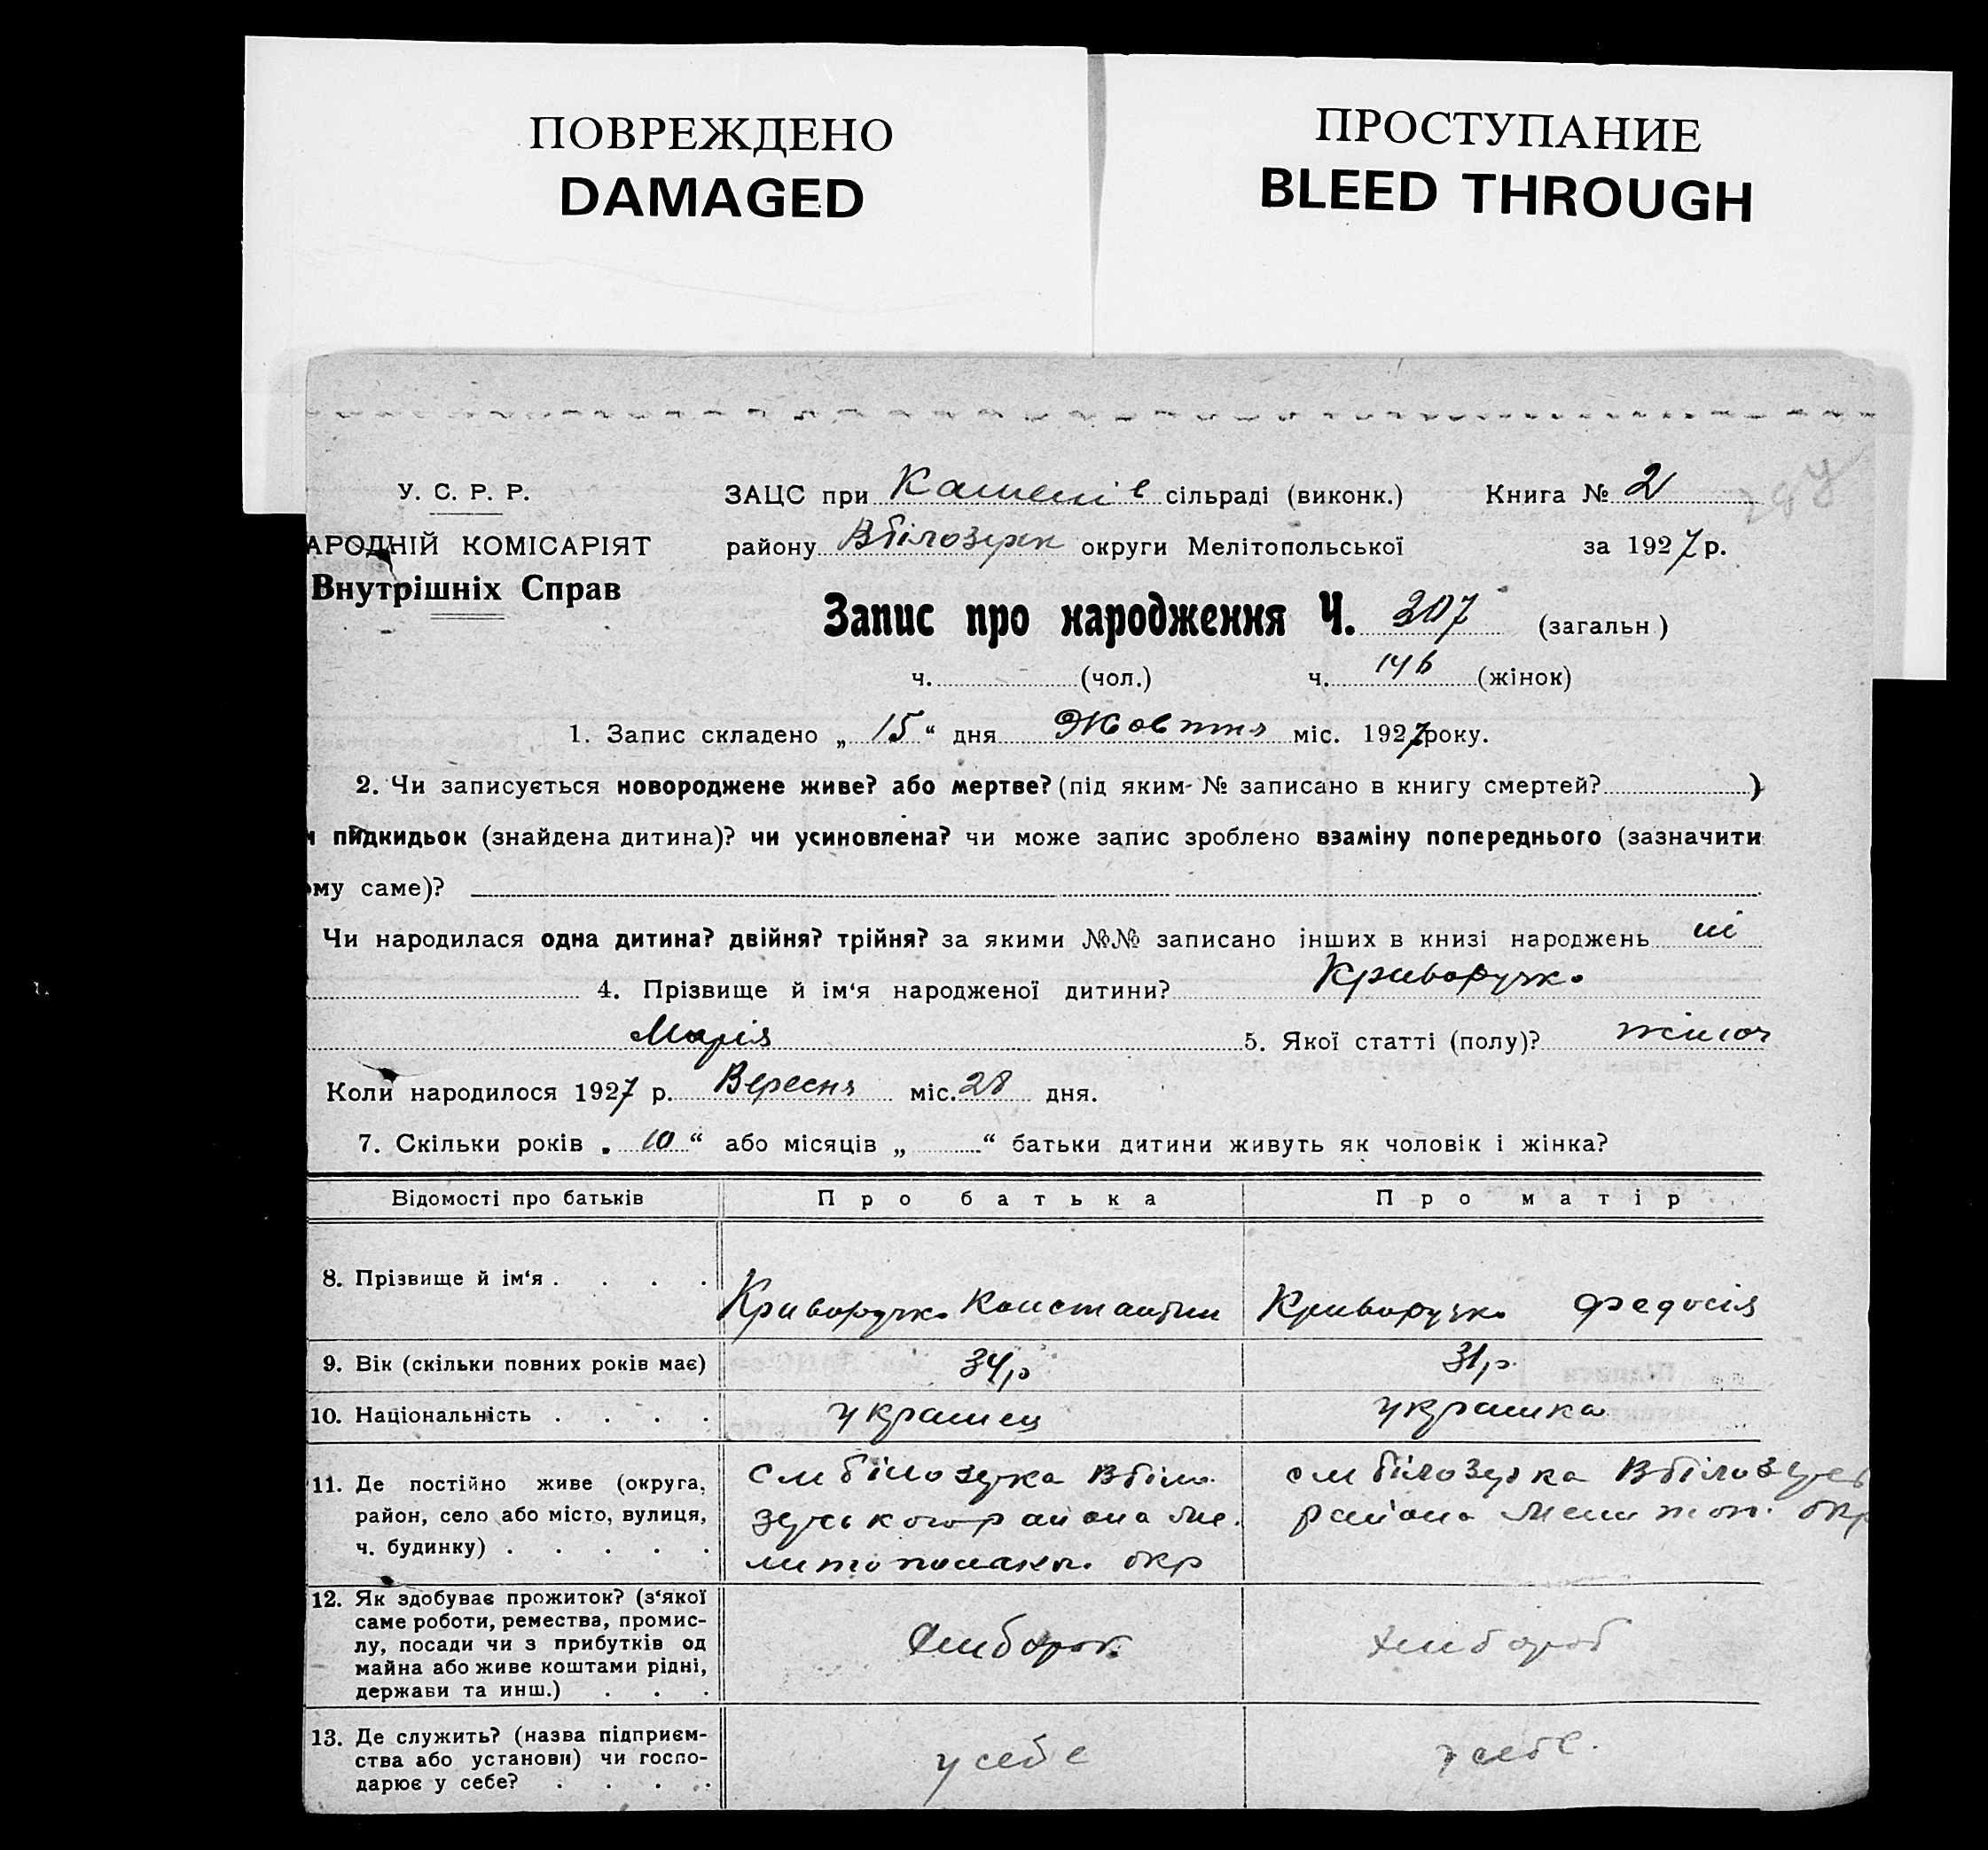 ПОВРЕЖДЕНО
DAMAGED
ПРОСТУПАНИЕ
BLEED THROUGH
У. С. Р. Р.
АРОДНІЙ КОМІСАРІЯТ
Внутрішніх Справ
ЗАЦС при сільраді (виконк.) Книга № 2
району Вбілозерк округи Мелітопольської за 1927 р.
Запис про народження Ч. 207 (загальн)
ч. (чол.) ч. 146 (жінок)
1. Запис складено „ 15 “ дня Жовтня міс. 1927 року.
2. Чи записується новороджене живе? або мертве? (під яким № записано в книгу смертей? )
и підкидьок (знайдена дитина)? чи усиновлена? чи може запис зроблено взаміну попереднього (зазначити
ому саме)?
Чи народилася одна дитина? двійня? трійня? за якими №№ записано інших в книзі народжень ні
4. Прізвище й ім'я народженої дитини? Криворучко
Марія 5. Якої статті (полу)? жіноч
Коли народилося 1927 р. Вересня міс. 28 дня.
7. Скільки років „ 10 “ або місяців „ “ батьки дитини живуть як чоловік і жінка?
Відомості про батьків Про батька Про матір
8. Прізвище й ім'я . . . . Криворучко Константин Криворучко Федосія
9. Вік (скільки повних років має) 34 р 31 р.
10. Національність . . . . украинец украинка
11. Де постійно живе (округа,
район, село або місто, вулиця,
ч. будинку) . . . . .
см білозерка Вбіло
зерського района Ме.
литопольськ. окр
см білозерка Вбілозерс
района Мелитоп. окр
12. Як здобуває прожиток? (з'якої
саме роботи, ремества, промис-
лу, посади чи з прибутків од
майна або живе коштами рідні,
держави та инш.) . . .
Хлибороб
хлибороб
13. Де служить? (назва підприєм-
ства або установи) чи госпо-
дарює у себе? . . . .
у себе
у себе.